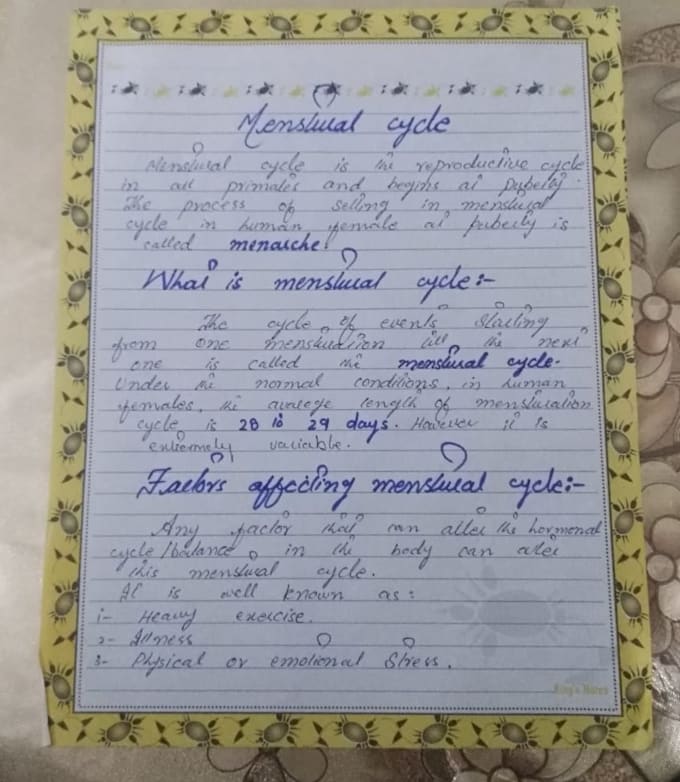 Menstrual cycle
Menstrual cycle is the reproductive cycle
in all primates and begins at puberty.
The process of setting in menstrual
cycle in human female at puberty is
called menarche.
What is menstrual cycle:-
The cycle of events starting
from one menstruation till the next
one is called the menstrual cycle.
Under the normal conditions, in human
females, the average length of menstruation
cycle is 28 to 29 days. However it is
extremely variable.
Factors affecting menstrual cycle:-
Any factor that can alter the hormonal
cycle/balance, in the body can alter
this menstrual cycle.
It is well known as:
1- Heavy exercise.
2- Illness
3- Physical or emotional stress.
King's Notes